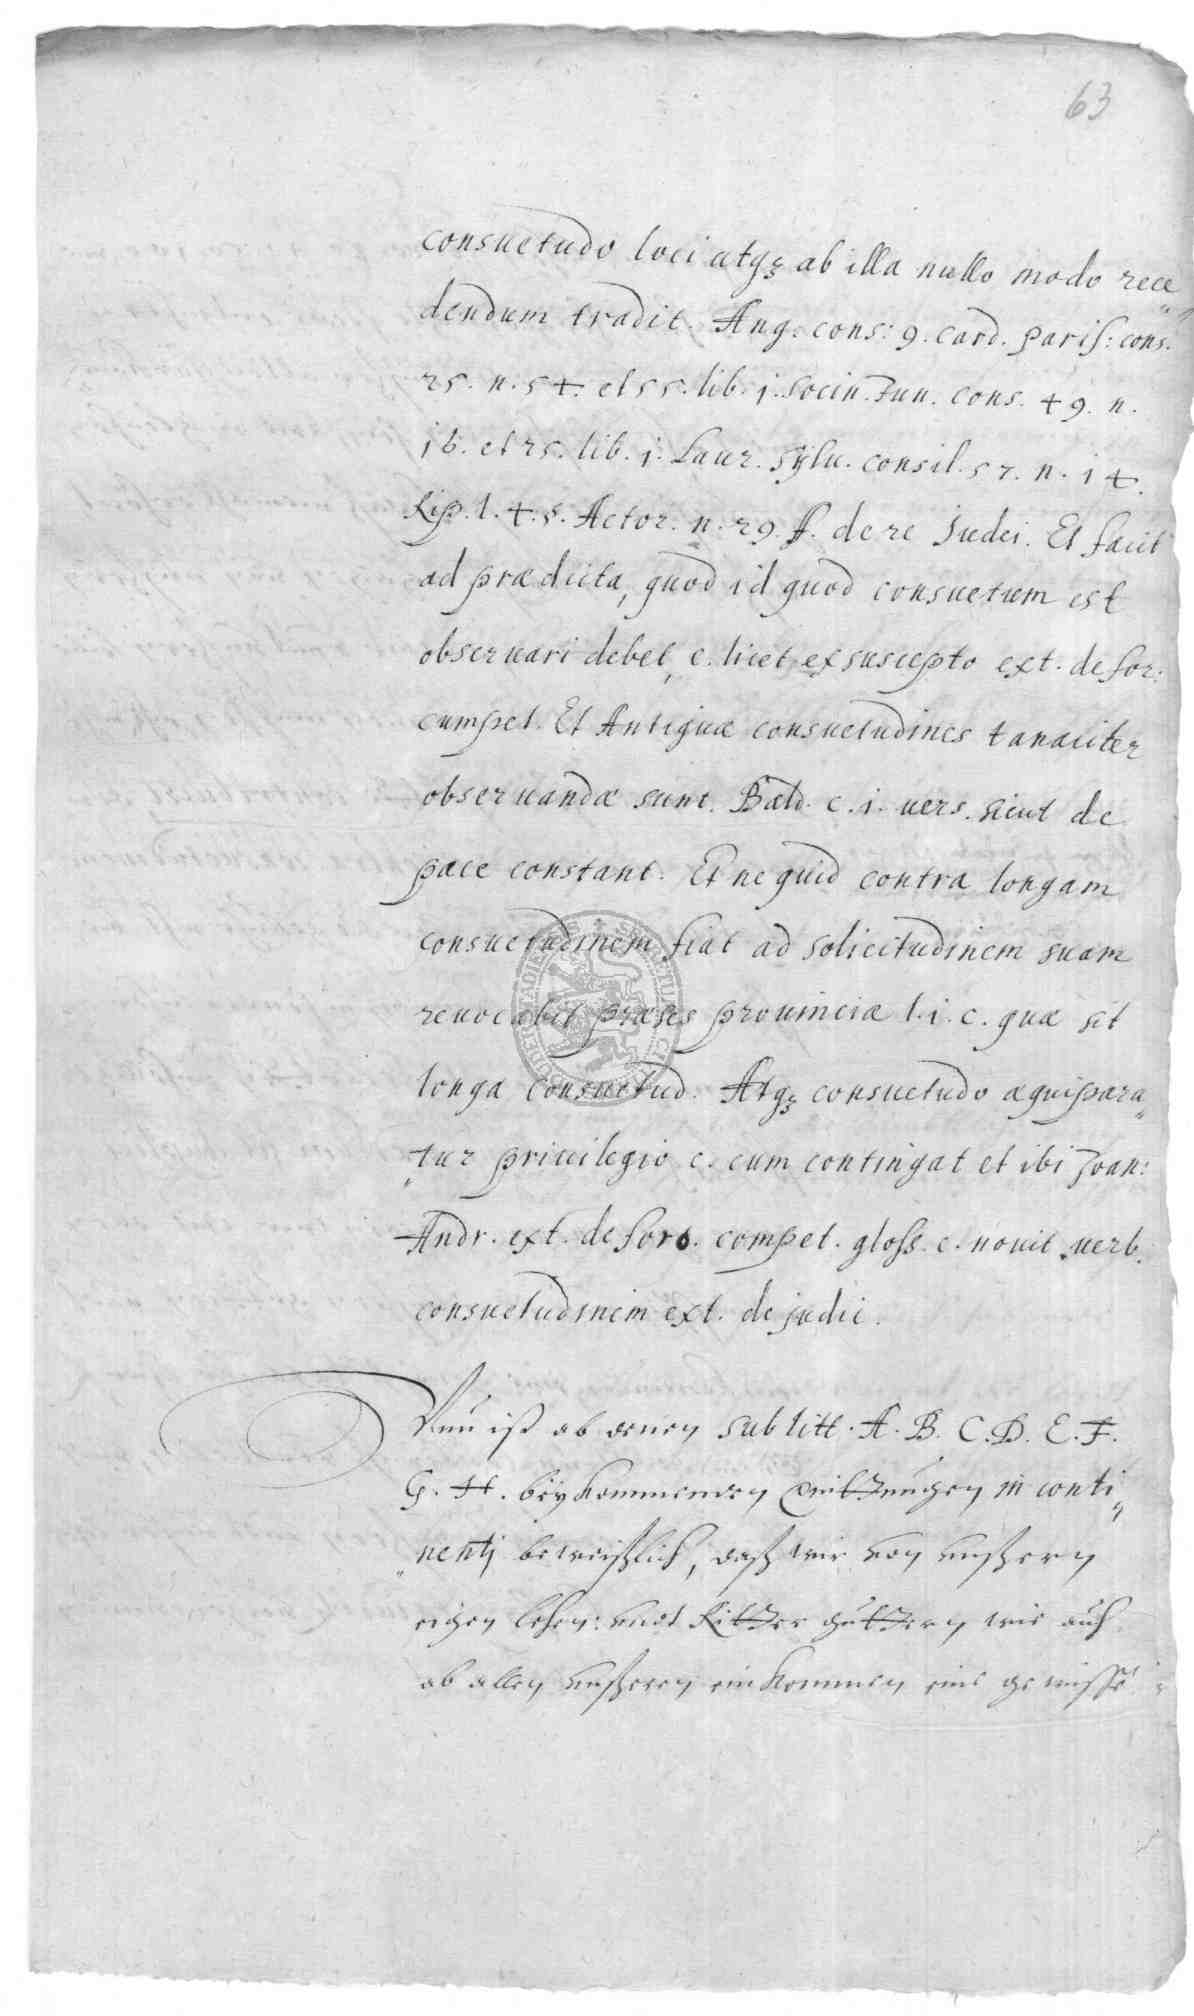 63
consuetudo loci atq₃ ab illa nullo modo rece„
dendum tradit. Ang. cons: 9. Card. Paris: cons.
25. n. 54. et 55. lib. j. Socin. Jun. cons. 49. n.
16. et 25. lib. j. Laur. Sÿlu. consil. 57. n. 14.
Rip. l. 4. §. Actor. n. 29. ff. de re Judei. Et facit
ad prædicta, quod id quod consuetum est
obseruari debet, c. licet ex suscepto ext. de for:
cumpet. Et Antiquæ consuetudines tanaciter
obseruandæ sunt. Bald. c. i. vers. sicut de
pace constant. Et ne quid contra longam
consuetudinem fiat ad solicitudinem suam
reuocabit præses prouinciæ l. i. c. quæ sit
longa consuetud. Atq₃ consuetudo æquipara„
„tur priuilegio c. cum contingat et ibi Joan:
Andr. ext. de foro. compet. gloss. c. nouit verb.
consuetudinem ext. de judic.
Nun ist ab denen sub litt. A. B. C. D. E. F.
G. H. beÿkommenden Quittungen in conti„
„nentj beweißlich, daß wir von unßern
eigen lehen: undt Ritter güttern wie auch
ab allen unßeren einkommen eine gewisse